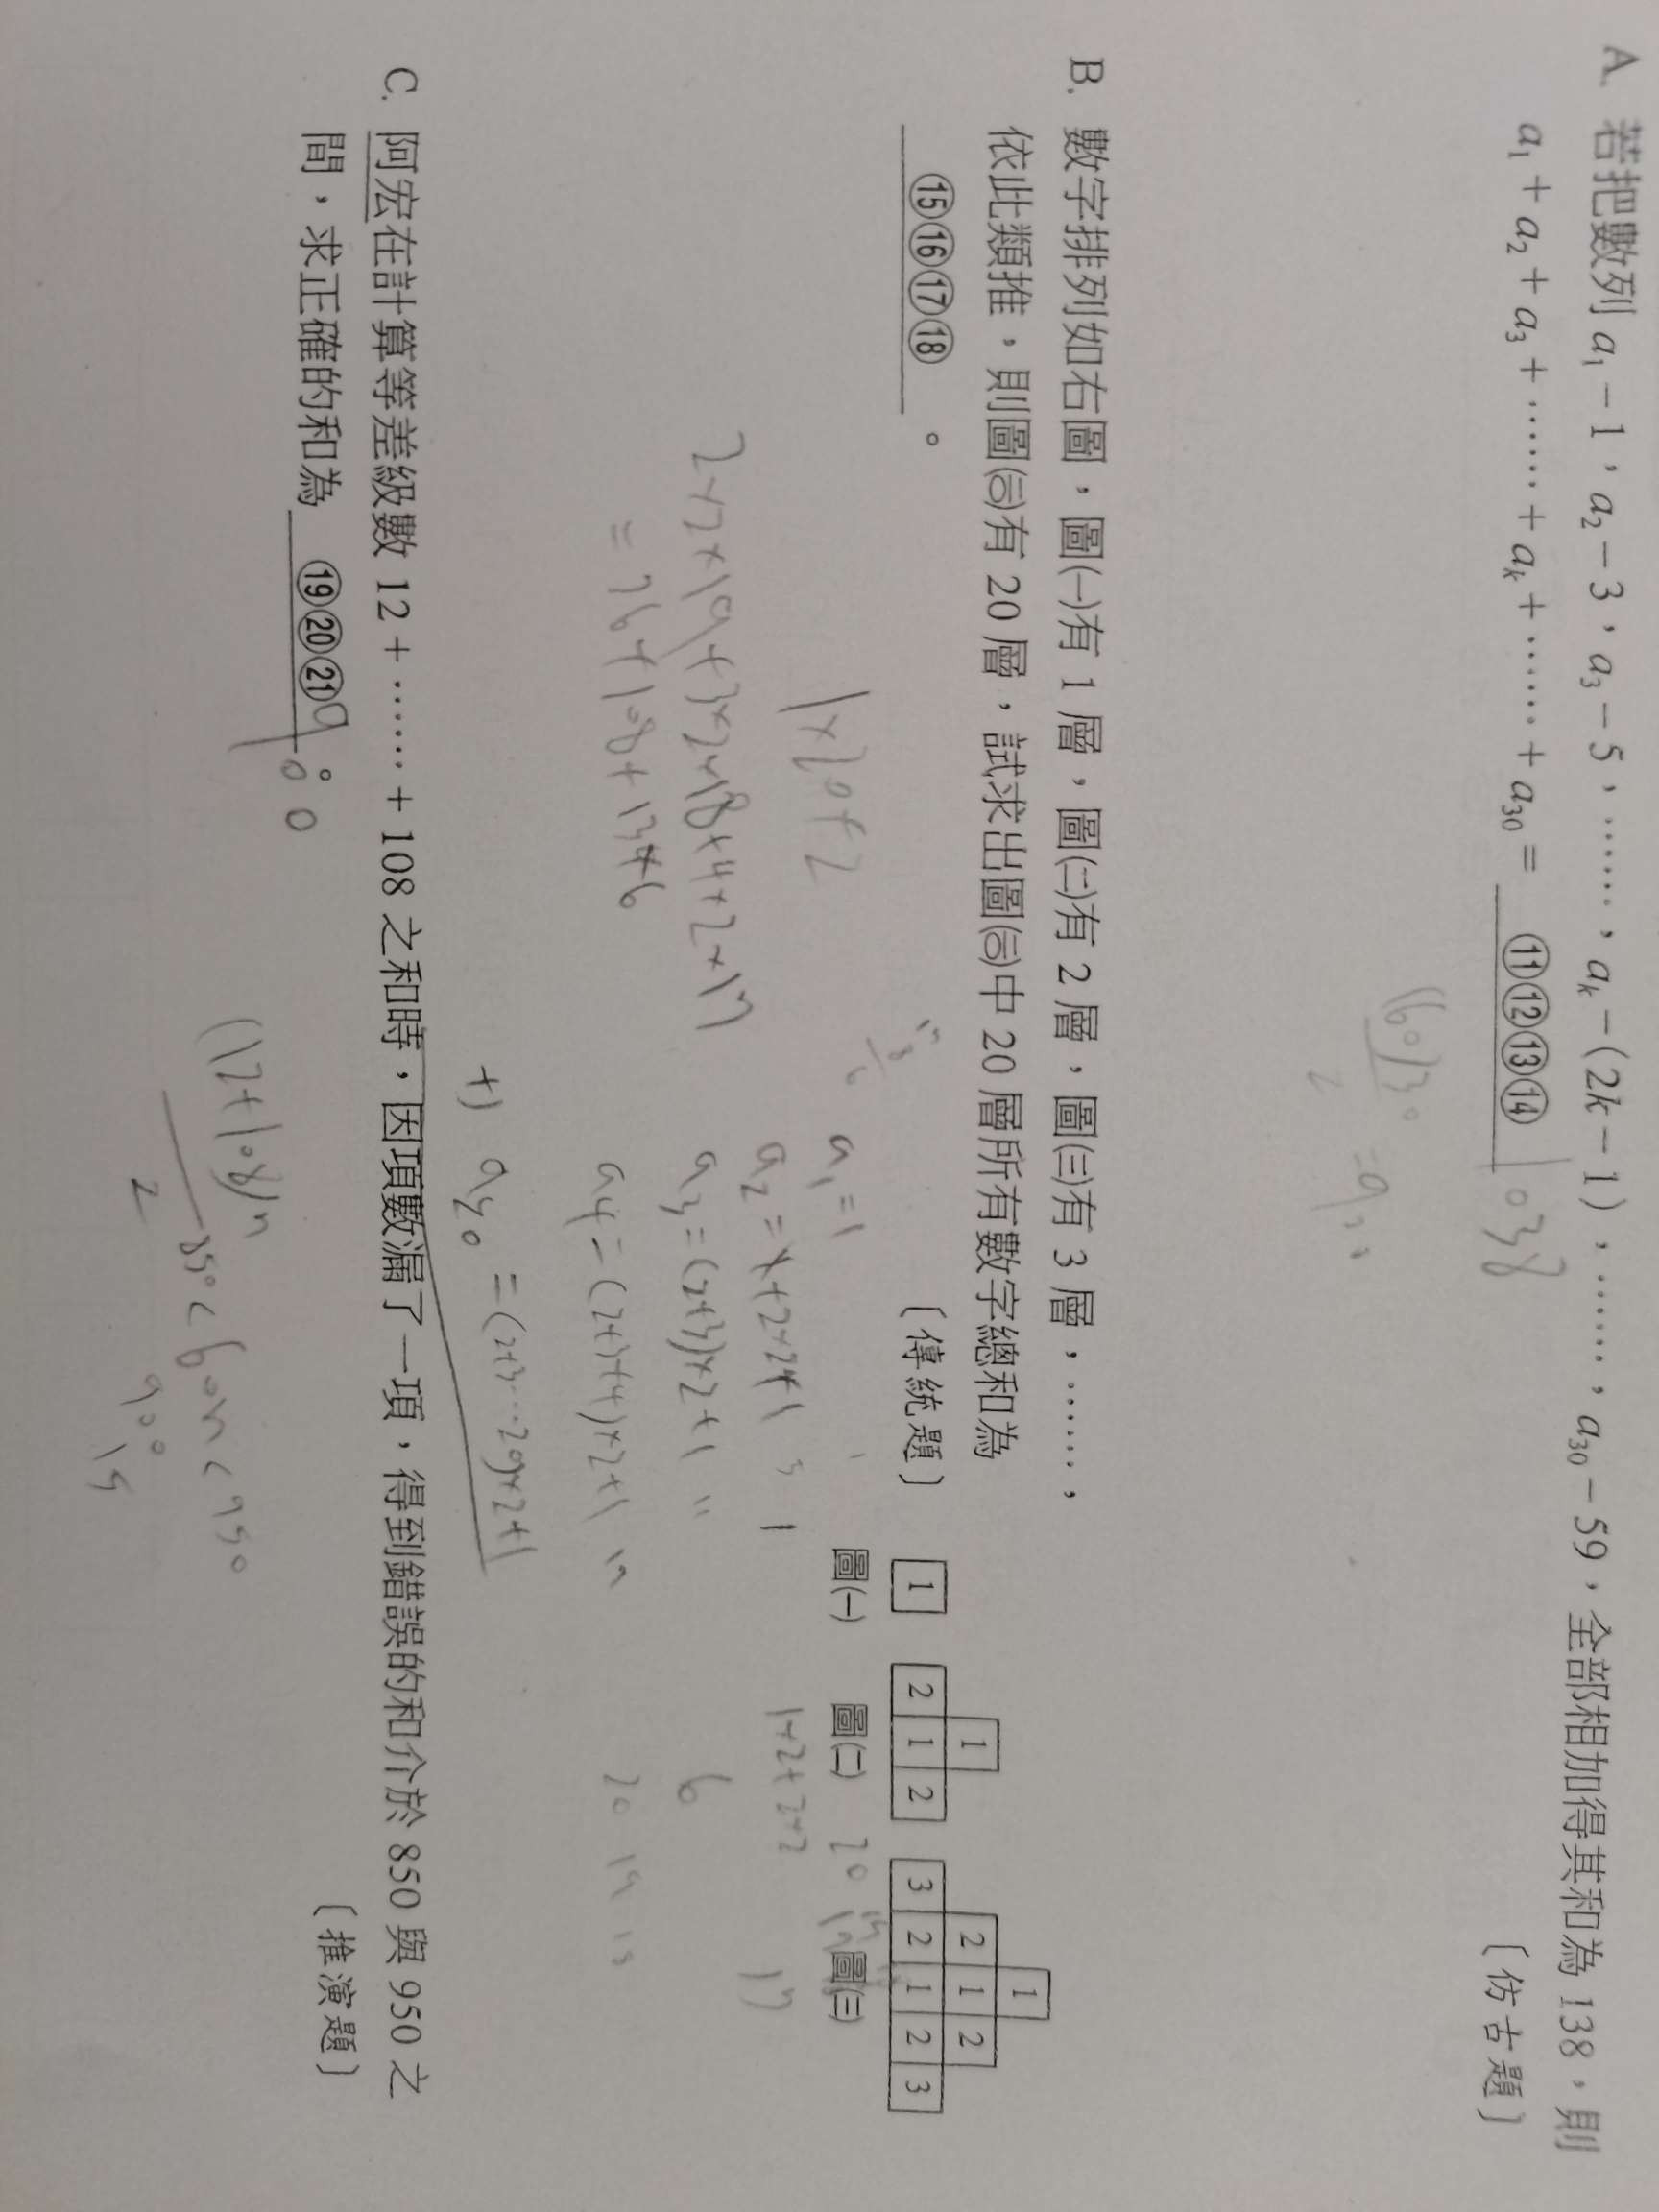 A. 若把數列 a₁－1，a₂－3，a₃－5，……，aₖ－(2k－1)，……，a₃₀－59，全部相加得其和為 138，則
a₁＋a₂＋a₃＋……＋aₖ＋……＋a₃₀＝ ⑪⑫⑬⑭ 1038
〔仿古題〕
(60)30
2
=900
B. 數字排列如右圖，圖㈠有 1 層，圖㈡有 2 層，圖㈢有 3 層，……，
依此類推，則圖(二十)有 20 層，試求出圖(二十)中 20 層所有數字總和為
⑮⑯⑰⑱ 。
〔傳統題〕
1
1
2 1 2
1
2 1 2
3 2 1 2 3
圖㈠ 圖㈡ 圖㈢
1×20+2
2×2×19+3×2×18+4×2×17
=76+108+136
a₁=1
a₂=1+2×2+1
a₃=(2+3)×2+1
a₄=(2+3+4)×2+1
+) a₂₀=(2+3…20)×2+1
1+2+2+2
20 19
17
6
20 19 18
C. 阿宏在計算等差級數 12＋……＋108 之和時，因項數漏了一項，得到錯誤的和介於 850 與 950 之
間，求正確的和為 ⑲⑳㉑ 。
900
〔推演題〕
(12+108)n
2
850<60n<950
900 15